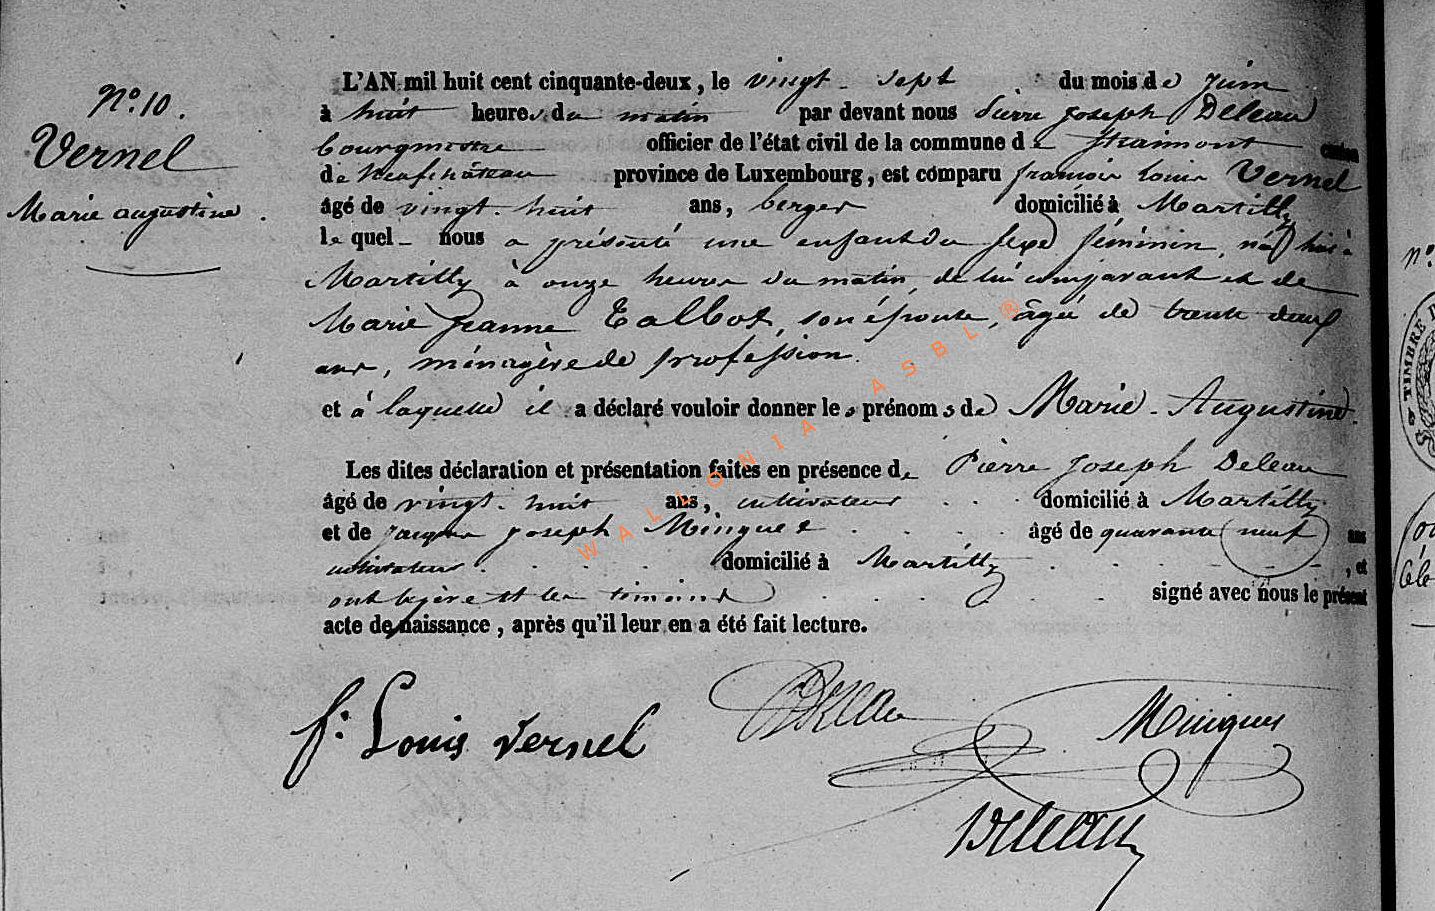 N.º 10.
Vernel
Marie augustine.
L'AN mil huit cent cinquante-deux, le vingt-sept du mois de Juin
à huit heures du matin par devant nous Pierre Joseph Deleau
bourgmestre officier de l'état civil de la commune de Straimont canton
de Neufchâteau province de Luxembourg, est comparu françois Louis Vernel
âgé de vingt-huit ans, berger domicilié à Martilly
lequel nous a présenté une enfant du sexe féminin, née hier à
Martilly à onze heures du matin, de lui comparant et de
Marie Jeanne Talbot, son épouse, âgée de trente deux
ans, ménagère de profession.
et à laquelle il a déclaré vouloir donner les prénoms de Marie-Augustine.
Les dites déclaration et présentation faites en présence de Pierre Joseph Deleau
âgé de vingt-huit ans, cultivateur domicilié à Martilly
et de Jacques Joseph Minguet âgé de quarante neuf ans
cultivateur domicilié à Martilly, et
ont le père et les témoins signé avec nous le présent
acte de naissance, après qu'il leur en a été fait lecture.
f: Louis Vernel Deleau Minguet
Deleau
WALLONIA ASBL ®
N.º
TIMBRE